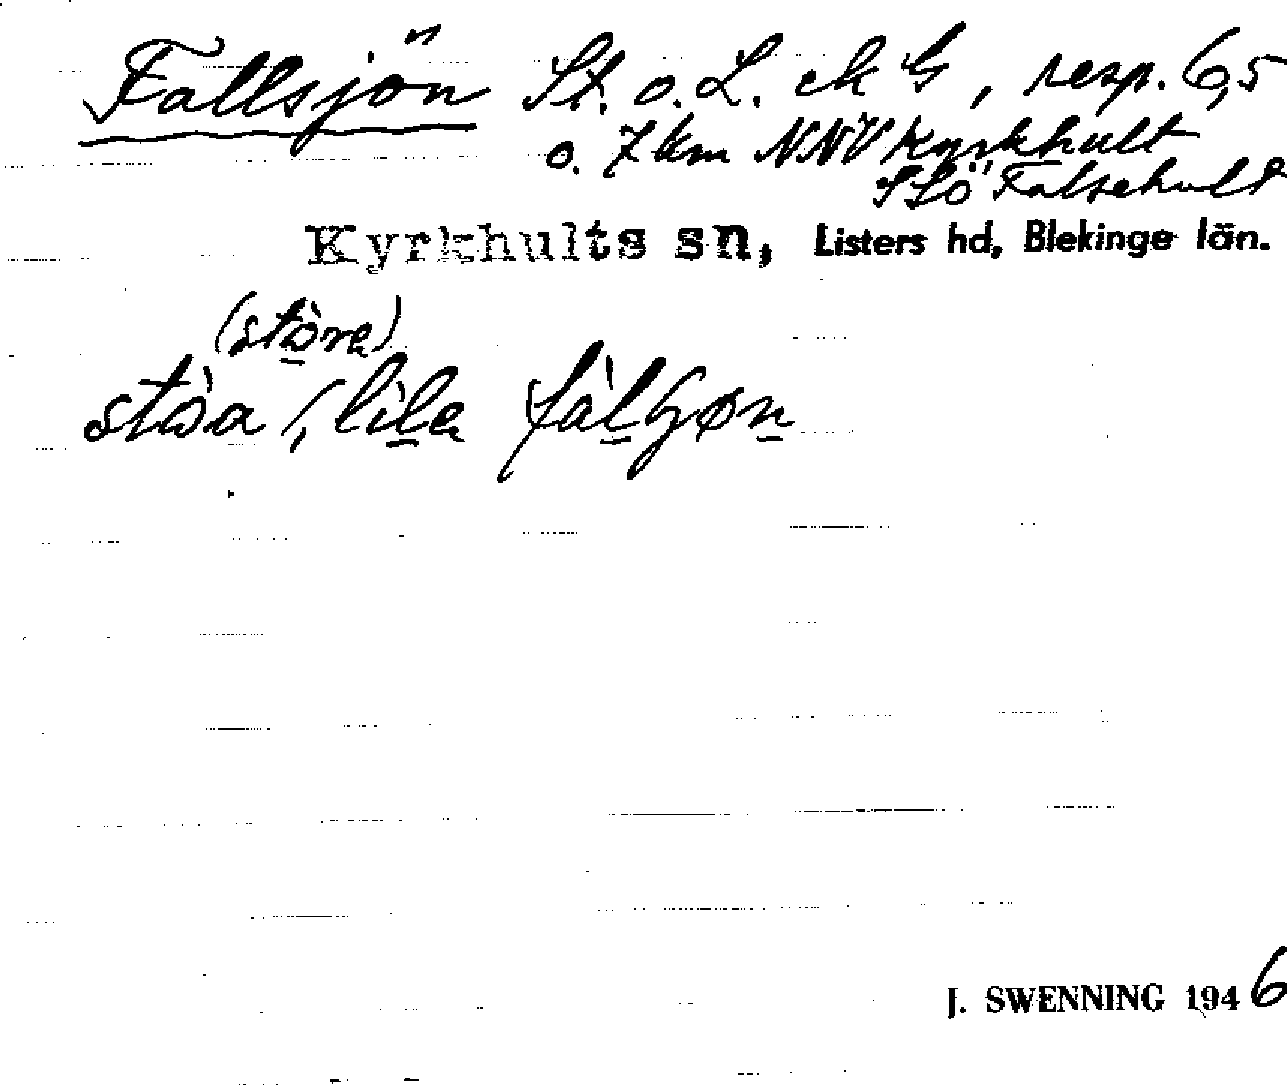 Fallsjön St. o. L. ek G, resp. 6,5
o. 7 km NNV Kyrkhult
SLÖ Falsehult
Kyrkhults sn, Listers hd, Blekinge län.
(störe)
stòa, lila
J. SWENNING 1946